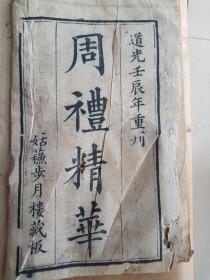 道光壬辰年重刊
周禮精華
姑蘓步月樓藏板